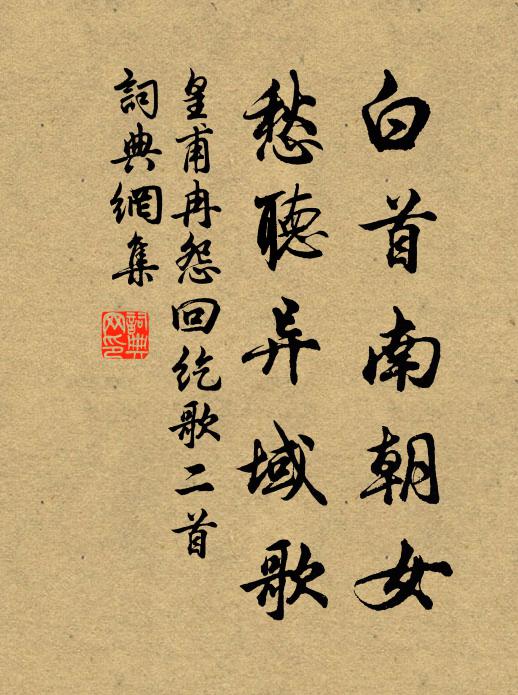 白首南朝女
愁聽异域歌
皇甫冉怨回紇歌二首
詞典網集
詞典網印